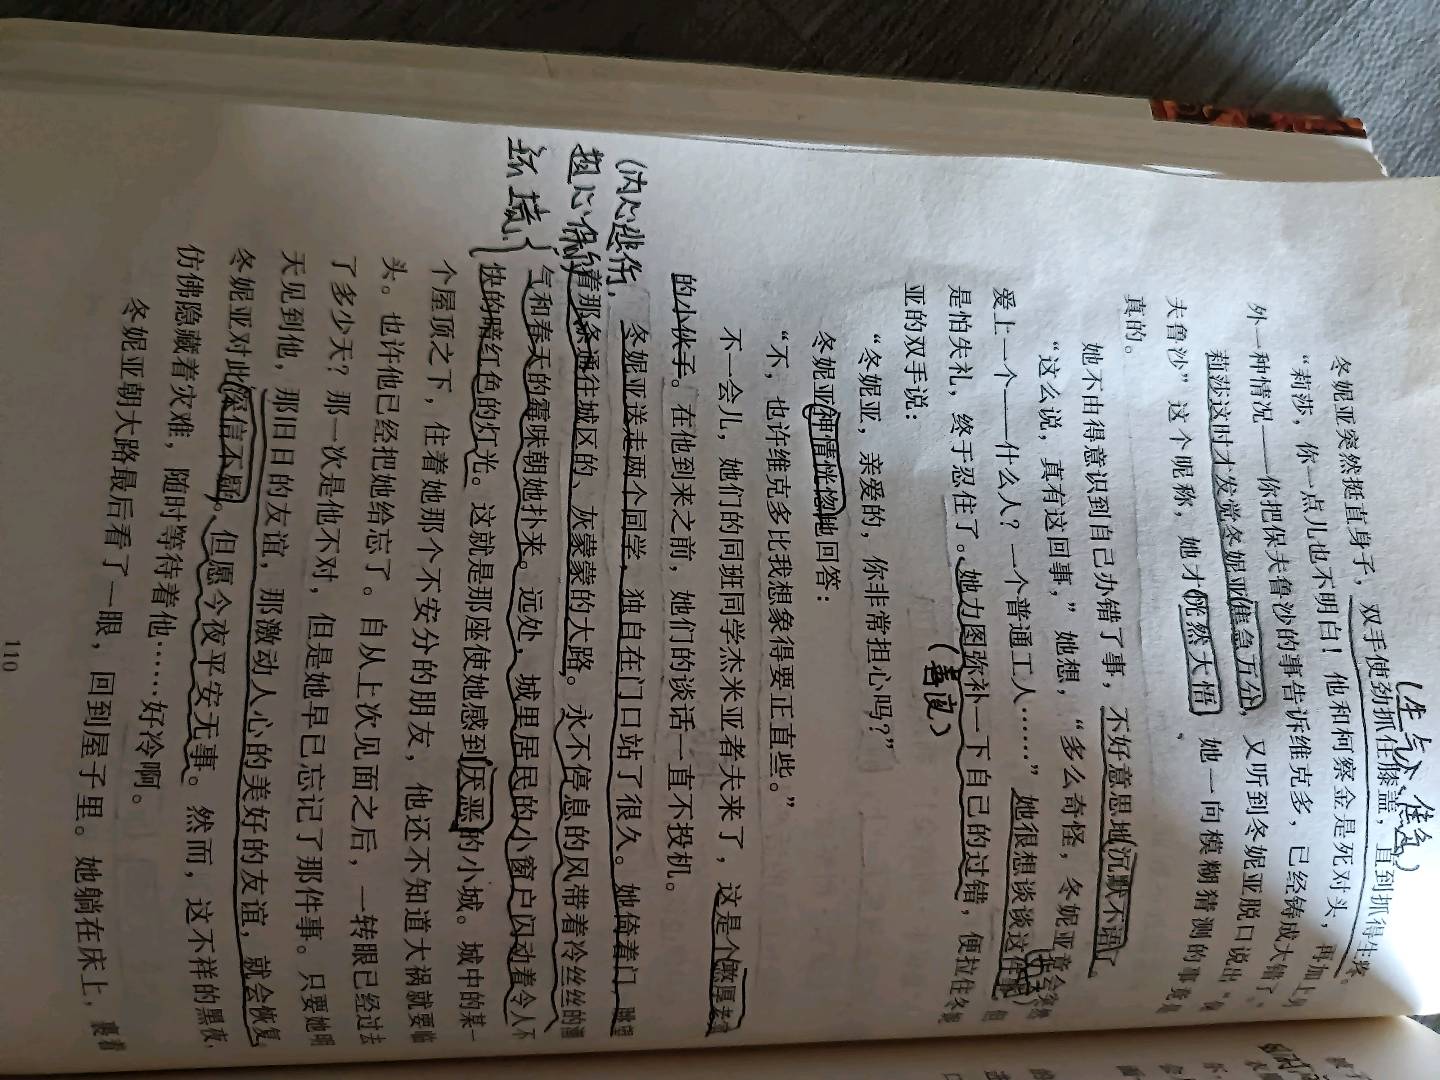 (生气、焦急)
冬妮亚突然挺直身子，双手使劲抓住膝盖，直到抓得生疼。
“莉莎，你一点儿也不明白！他和柯察金是死对头，再加上另
外一种情况——你把保夫鲁沙的事告诉维克多，已经铸成大错了。”
莉莎这时才发觉冬妮亚焦急万分，又听到冬妮亚脱口说出“保
夫鲁沙”这个昵称，她才恍然大悟，她一向模糊猜测的事竟是
真的。
她不由得意识到自己办错了事，不好意思地沉默不语了。
“这么说，真有这回事，”她想，“多么奇怪，冬妮亚竟会突然
爱上一个——什么人？一个普通工人……”她很想谈谈这件事，但
是怕失礼，终于忍住了。她力图弥补一下自己的过错，便拉住冬妮
亚的双手说：
“冬妮亚，亲爱的，你非常担心吗？”
冬妮亚神情恍惚地回答：
“不，也许维克多比我想象得要正直些。”
不一会儿，她们的同班同学杰米亚诺夫来了，这是个敦厚老实
的小伙子。在他到来之前，她们的谈话一直不投机。
(内心悲伤，
担心保)
冬妮亚送走两个同学，独自在门口站了很久。她倚着门，眺望
着那条通往城区的、灰蒙蒙的大路。永不停息的风带着冷丝丝的潮
气和春天的霉味朝她扑来。远处，城里居民的小窗户闪动着令人不
快的暗红色的灯光。这就是那座使她感到厌恶的小城。城中的某一
个屋顶之下，住着她那个不安分的朋友，他还不知道大祸就要临
头。也许他已经把她给忘了。自从上次见面之后，一转眼已经过去
了多少天？那一次是他不对，但是她早已忘记了那件事。只要她明
天见到他，那旧日的友谊，那激动人心的美好的友谊，就会恢复。
冬妮亚对此深信不疑。但愿今夜平安无事。然而，这不祥的黑夜，
仿佛隐藏着灾难，随时等待着他……好冷啊。
冬妮亚朝大路最后看了一眼，回到屋子里。她躺在床上，裹着
110